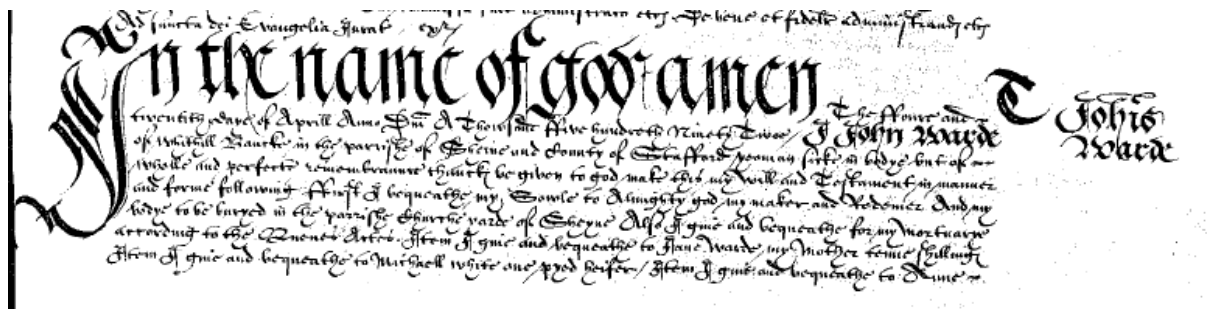 ad sancta dei Evangelia Jurat exr
In the name of god amen The ffoure and
twentith daye of Aprill Anno Dni A Thowsand ffive hundreth Ninety Twoe / I John Warde
of Bancke in the parrishe of Sheine and County of Stafford yeoman sicke in bodye but of
wholle and perfecte remembraunce thanckes be given to god make this my will and Testament in manner
and forme following ffirst I bequeathe my Sowle to Almighty god my maker and Redemer And my
bodye to be buryed in the parrishe Churche yarde of Sheyne Also I give and bequeathe for my Mortuarye
according to the Quenes Actes. Item I give and bequeathe to Jane Warde my Mother tenne shillings
Item I give and bequeathe to Michaell White one pyed heifer / Item I give and bequeathe to Anne
T Johis
Warde